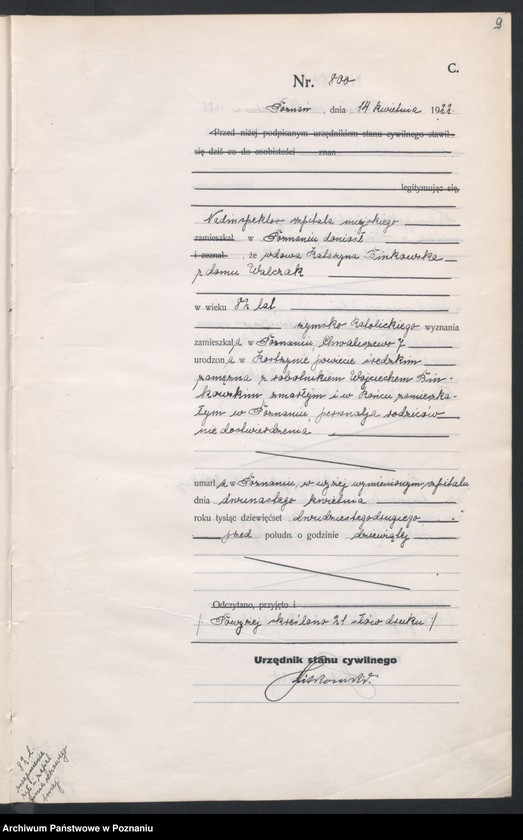 9
C.
Nr. 800
Poznań, dnia 14 kwietnia 1922.
Przed niżej podpisanym urzędnikiem stanu cywilnego stawił
się dziś co do osobistości znan
legitymując się,
Nadinspektor szpitala miejskiego
zamieszkał w Poznaniu doniósł
i zeznał, że wdowa Katarzyna
z domu Walczak
w wieku 82 lat
rzymsko katolickiego wyznania
zamieszkała w Poznaniu, Chwaliszewo 7
urodzona w powiecie średzkim
zamężna z robotnikiem Wojciechem
zmarłym i w końcu zamieszka-
łym w Poznaniu, personalja rodziców
nie do stwierdzenia
umarła w Poznaniu, w wyżej wymienionym szpitalu
dnia dwunastego kwietnia
roku tysiąc dziewięćset dwudziestegodrugiego
przed południ. o godzinie dziewiątej
Odczytano, przyjęto i
/ Powyżej skreślono 21 słów druku /
Urzędnik stanu cywilnego
Archiwum Państwowe w Poznaniu